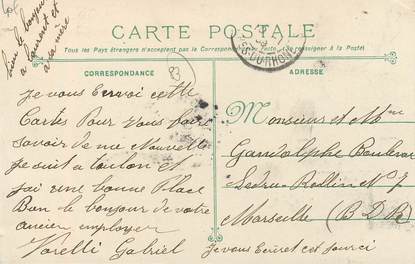 bien le bonjour
a laurent et
a sa mère
CARTE POSTALE
Tous les Pays étrangers n'acceptent pas la Correspondance au recto. (Se renseigner à la Poste)
CORRESPONDANCE
ADRESSE
83
Je vous Envoi cette
Cartes Pour vous faire
Savoir de me Nouvelle
Je suit a toulon Et
J'ai une bonne Place
Bon le bonjour de votre
ancien imployer
Vorelli Gabriel
Monsieur et Mme
Gandolphe Boulevar
Ledru Rollin N 7
Marseille (B D R)
Je vous Ecriret cet jour ci